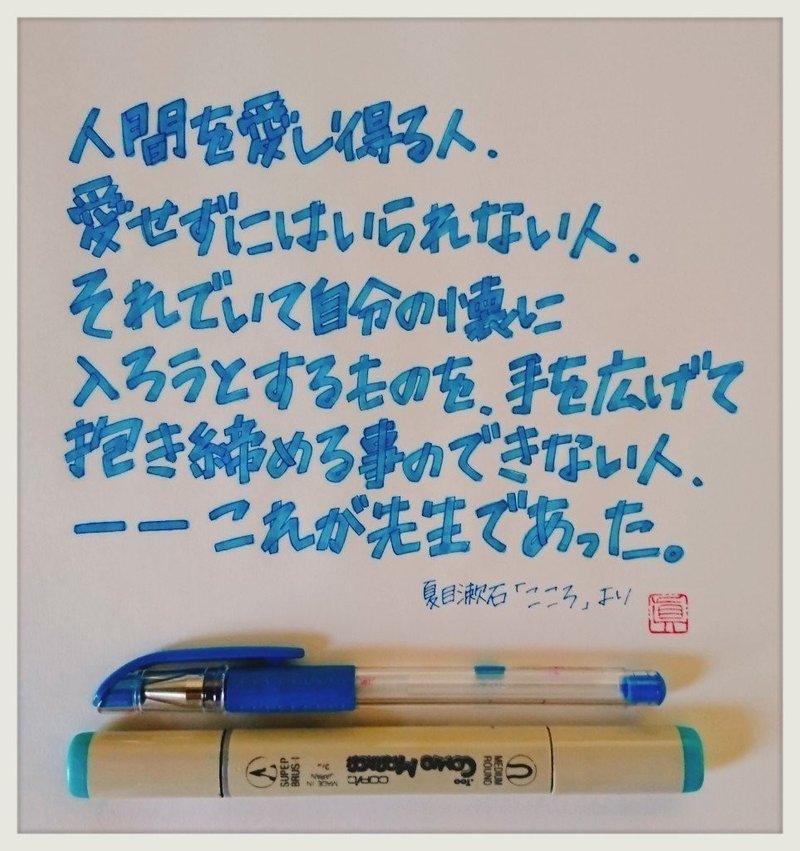 人間を愛し得る人、
愛せずにはいられない人、
それでいて自分の懐に
入ろうとするものを、手を広げて
抱き締める事のできない人、
――これが先生であった。
夏目漱石「こころ」より
眞
SUPER BRUSH
MADE IN JAPAN
COPIC
MEDIUM ROUND